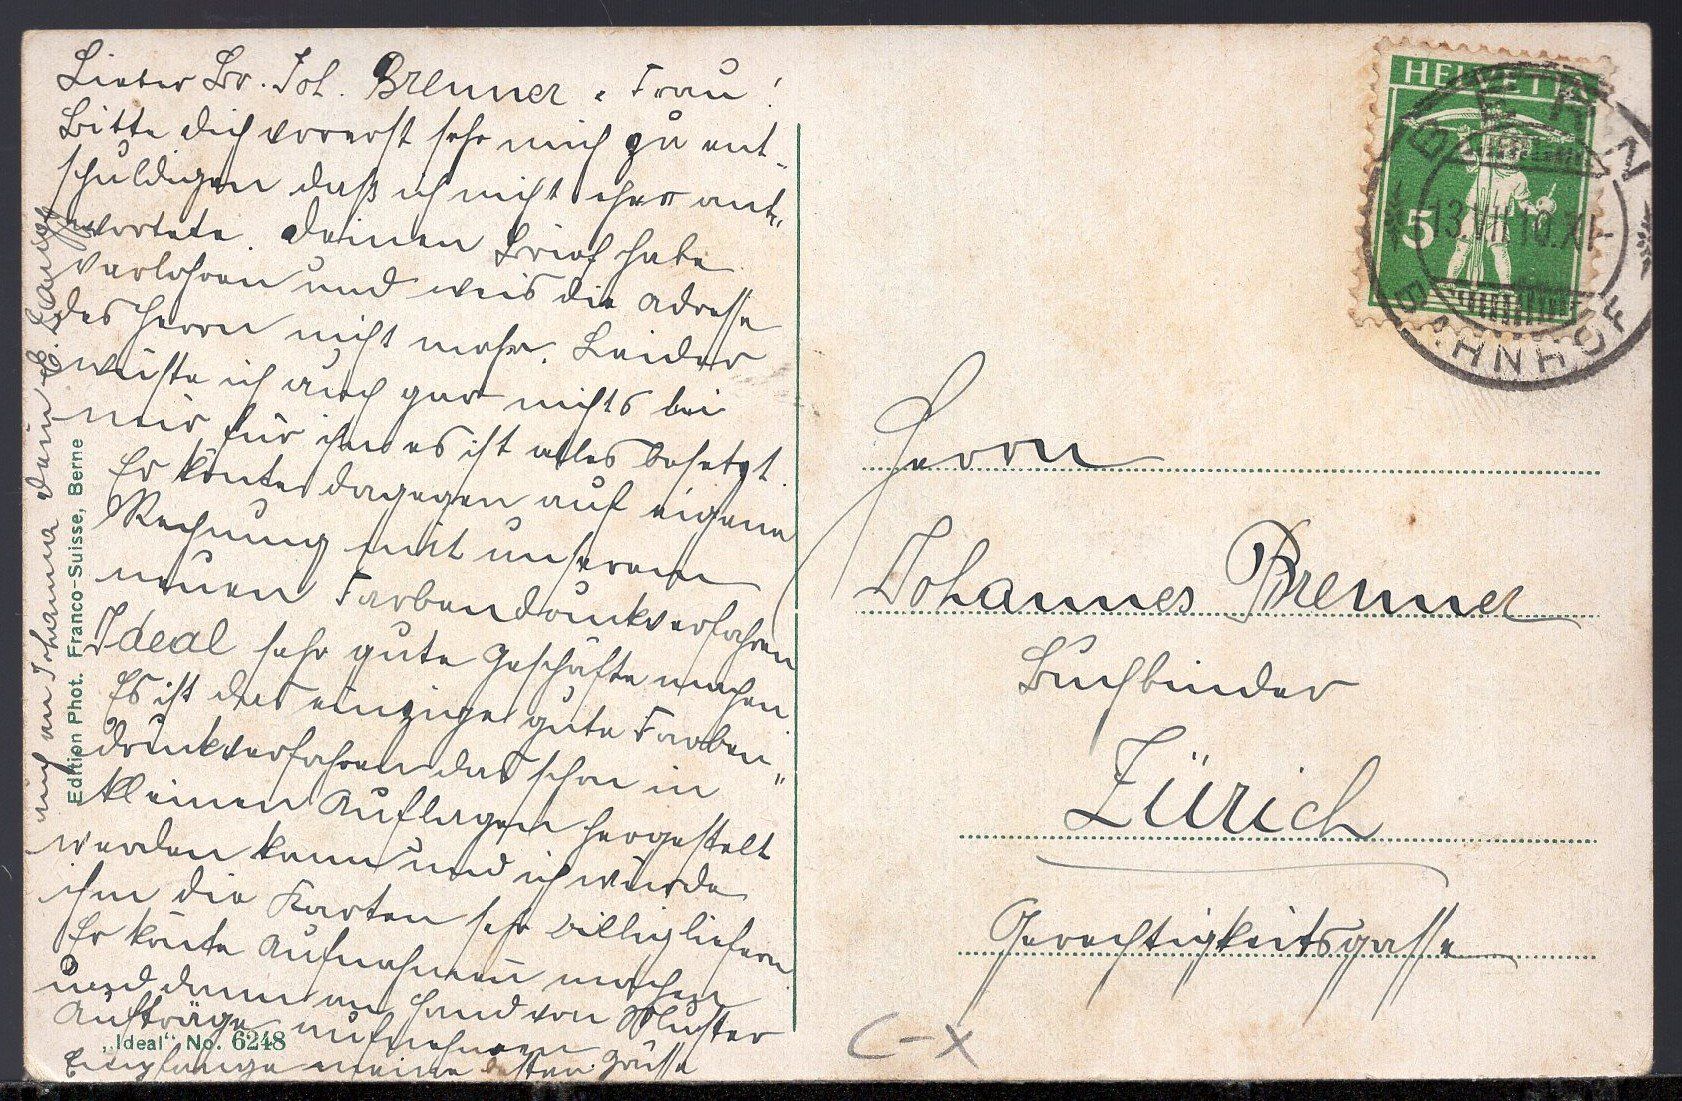 Lieber Br. Joh. Brenner & Frau!
Bitte dich vorerst sehr mich zu ent-
schuldigen daß ich nicht eher ant-
wortete. Deinen Brief habe
verlohren und weis die Adresse
des Herrn nicht mehr. Leider
wüste ich auch gar nichts bei
mir für ihn es ist alles besetzt.
Er könte dagegen auf eigene
Rechnung mit unserem
neuen Farbendruckverfahren
Ideal sehr gute Geschäfte machen
Es ist das einzige gute Farben„
druckverfahren das schon in
kleinen Auflagen hergestelt
werden kann und ich würde
ihm die Karten sehr billig liefern
Er könte Aufnahmen machen
und dann an Hand von Muster
Aufträge aufnehmen
Empfange meine besten Grüsse
auch an Johanna dein E.
Edition Phot. Franco-Suisse, Berne
„Ideal“ No. 6248
HELVETIA
5
BERN
13.VII.10.XI
BAHNHOF
Herrn
Johannes Brenner
Buchbinder
Zürich
Gerechtigkeitsgasse
C-X